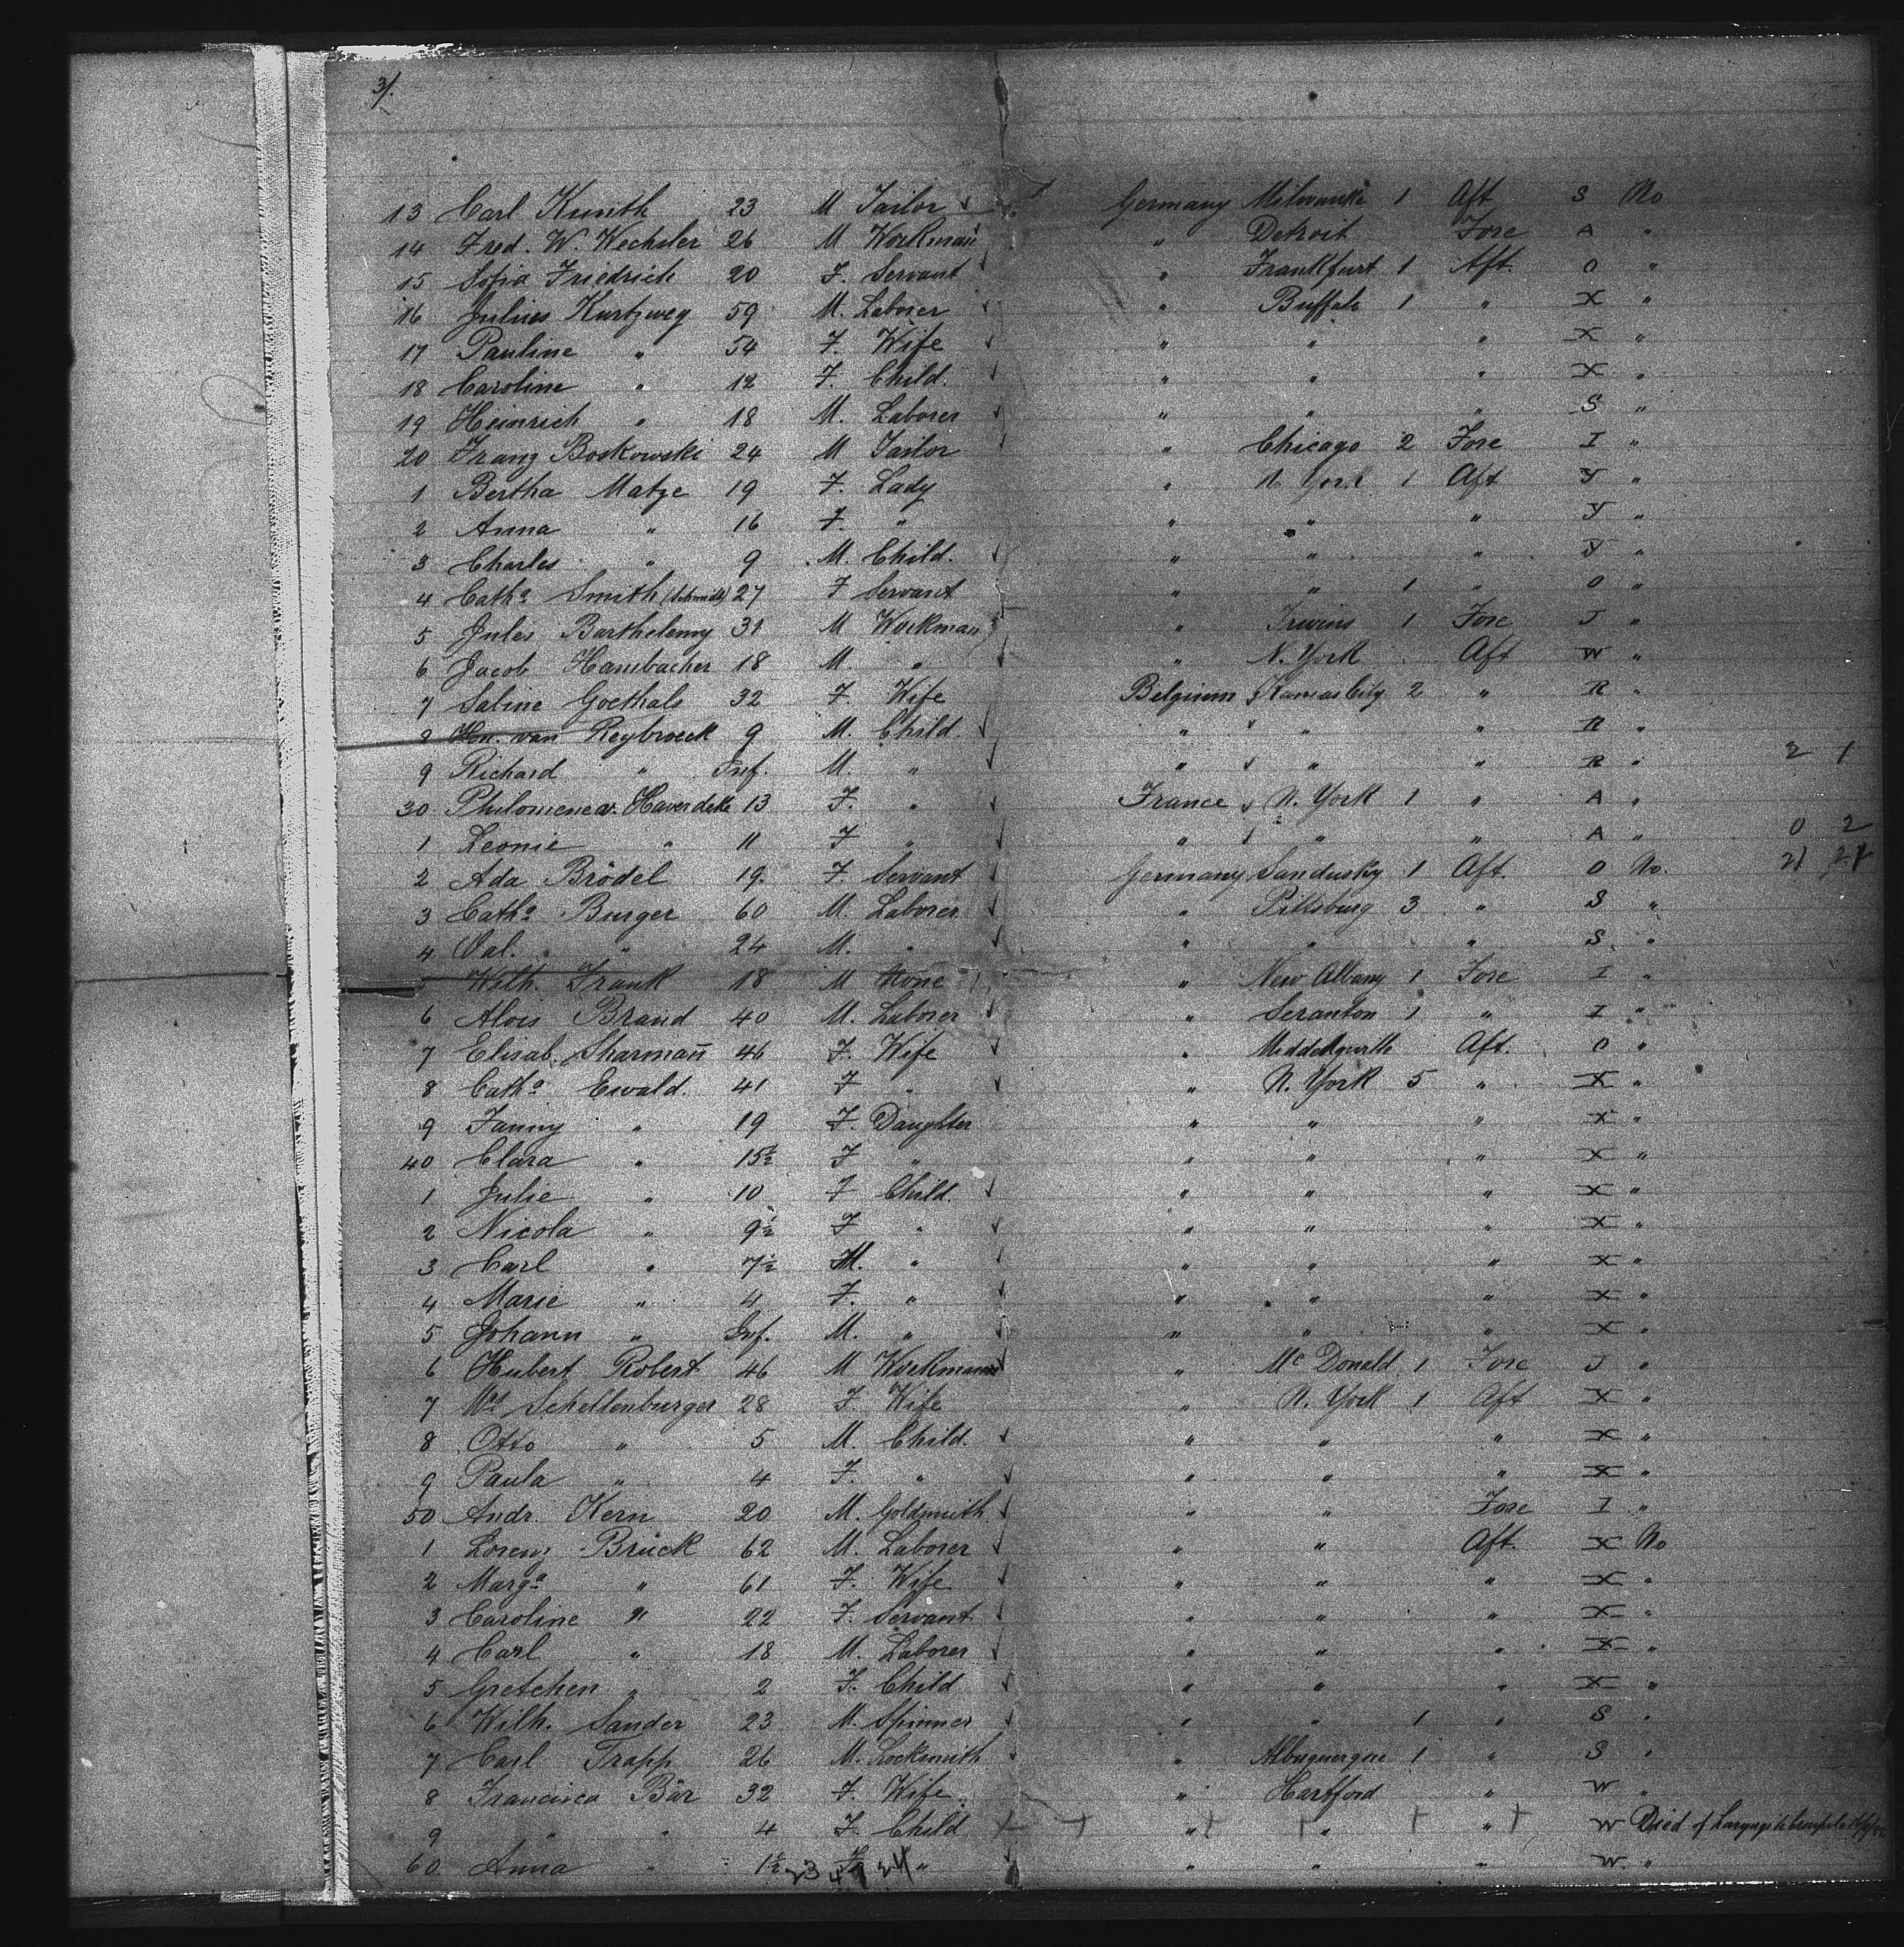 3/.
13 Carl Kunith 23 M Tailor Germany Milwaukie 1 Aft S No
14 Fred. W. Wechsler 26 M Workman " Detroit Fore A "
15 Sofia Friedrich 20 F. Servant " Frankfurt 1 Aft. O "
16 Julius Kurtzweg 59 M. Laborer " Buffalo 1 " X "
17 Pauline " 54 F. Wife " " " X "
18 Caroline " 12 F. Child. " " " X "
19 Heinrich " 18 M. Laborer " " " S "
20 Franz Boskowski 24 M Tailor " Chicago 2 Fore I "
1 Bertha Matze 19 F. Lady " N York 1 Aft Y "
2 Anna " 16 F. " " " " Y "
3 Charles " 9 M. Child. " " " Y "
4 Catha Smith (Schmidt) 27 F Servant " " 1 " O "
5 Jules Barthelemy 31 M Workman " Irwins 1 Fore J "
6 Jacob Hambacher 18 M. " " N. York Aft W "
7 Sabine Goethals 32 F. Wife Belgium Kansas City 2 " R "
8 van Reybroeck 9 M. Child. " " " R "
9 Richard " Inf. M. " " " " R " 2 1
30 Philomene v. Haverdeke 13 F. " France N. York 1 " A "
1 Leonie " 11 F " " " " A " 0 2
2 Ada Brödel 19. F. Servant Germany Sandusky 1 Aft. O No. 21 21
3 Catha Burger 60 M. Laborer " Pittsburg 3 " S "
4 Val. " 24 M. " " " " S. "
Wilh. Frank 18 M None " New Albany 1 Fore I "
6 Alois Brand 40 M. Laborer " Scranton 1 " I "
7 Elisab. Sharmañ 46 F. Wife " Aft. O "
8 Catha Ewald. 41 F " " N. York 5 " X "
9 Fanny " 19 F. Daughter " " " X "
40 Clara " 15½ F " " " " X "
1 Julie " 10 F Child. " " " X "
2 Nicola " 9½ F " " " " X "
3 Carl " 7½ M. " " " " X "
4 Marie " 4 F. " " " " X "
5 Johann " Inf. M. " " " " X "
6 Hubert Robert 46 M Workman " Mc Donald 1 Fore J "
7 Schellenburger 28 F. Wife " N. York 1 Aft X "
8 Otto " 5 M. Child. " " " X "
9 Paula " 4 F. " " " " X "
50 Andr. Kern 20 M. Goldsmith " " Fore I "
1 Lorenz Brück 62 M. Laborer " " Aft. X No
2 Marga " 61 F. Wife " " " X "
3 Caroline " 22 F. Servant " " " X "
4 Carl " 18 M. Laborer " " " X "
5 Gretchen " 2 F. Child " " " X "
6 Wilh. Sander 23 M. Spinner " " 1 " S "
7 Carl Trapp 26 M. Locksmith " Albuquerque 1 " S "
8 Francisca Bär 32 F. Wife " Hartford " W "
9 " " 4 F. Child " " " W Died of
60 Anna " 1½ F " " " " W. "
23 24